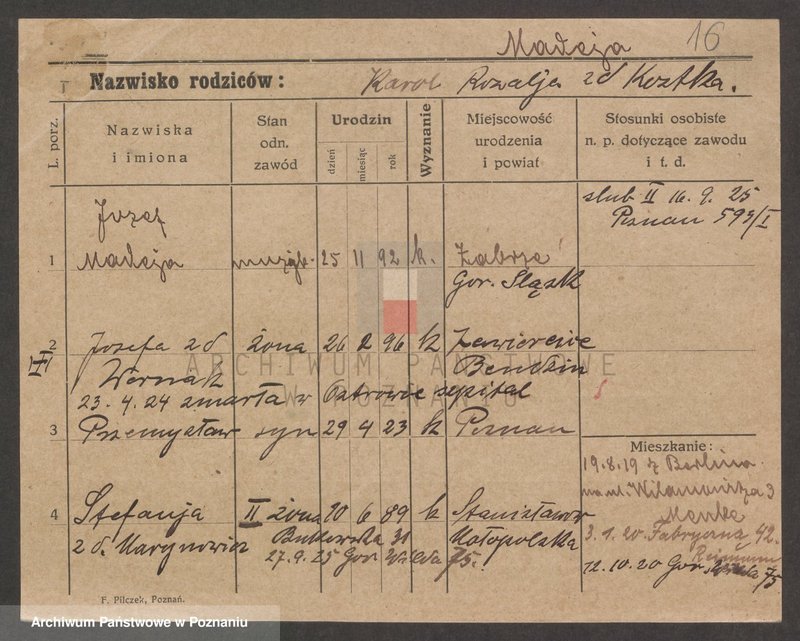 Madeja 16
Nazwisko rodziców: Karol Rozalja zd Kostka.
L. porz.
Nazwiska i imiona
Stan odn. zawód
Urodzin
dzień
miesiąc
rok
Wyznanie
Miejscowość urodzenia i powiat
Stosunki osobiste n. p. dotyczące zawodu i t. d.
ślub II 16. 9. 25
Poznan 593/I
Jozef
1 Madeja muzyk. 25 11 92 k. Zabrze
Gor. Sląsk
2 Jozefa zd żona 26 2 96 k Zawiercie
Wornak Bendzin
23. 4. 24 zmarła w Ostrowie szpital
3 Przemysław syn 29 4 23 k Poznan
Mieszkanie:
19.8.19 z Berlina
na ul. Wilamowitza 3
Menke
4 Stefanja II żona 20 6 89 k Stanisławow
3. 1. 20 Fabryczna 42.
z d. Marynowicz Bukowska 31 Małopolska
27. 9. 25 Gor Wilda 75.
12. 10. 20 Gor. Wilda 75
F. Pilczek, Poznań.
ARCHIWUM PAŃSTWOWE
W POZNANIU
Archiwum Państwowe w Poznaniu